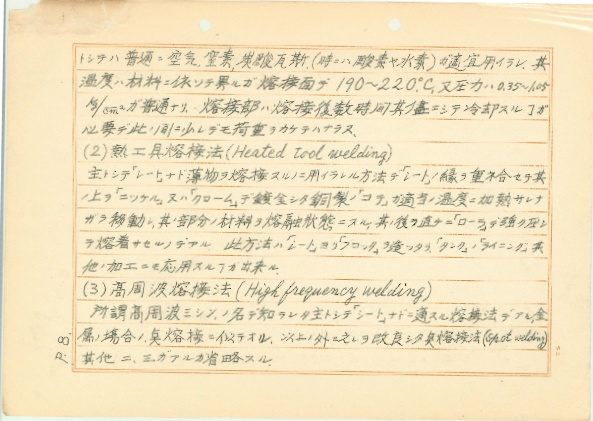 トシテハ普通ニ空気、窒素、炭酸瓦斯、(時ニハ酸素ヤ水素)ガ適宜用イラレ、其
温度ハ材料ニ依ツテ異ルガ熔接面デ190～220℃、又圧力ハ0.35～1.05
kg/cm²ガ普通ナリ、熔接部ハ熔接後数時間其儘ニシテ冷却スルヿガ
必要デ此ノ間ニ少シデモ荷重ヲカケテハナラヌ、
(2)熱工具熔接法(Heated tool welding)
主トシテ「シート」ナド薄物ヲ熔接スルノニ用イラレル方法デ「シート」ノ縁ヲ重ネ合セテ其
ノ上ヲ「ニッケル」又ハ「クローム」デ鍍金シタ銅製ノ「コテ」ガ適当ノ温度ニ加熱サレナ
ガラ移動シ、其ノ部分ノ材料ヲ熔融状態ニスル、其ノ後ヲ直チニ「ローラ」デ強ク圧シ
テ熔着サセルノデアル 此方法ハ「シート」ヨリ「ブロック」ヲ造ツタリ、「タンク」ノ「ライニング」其
他ノ加工ニモ応用スルヿガ出来ル、
(3)高周波熔接法(High frequency welding)
所謂高周波ミシン、ノ名デ知ラレタ主トシテ「シート」ナドニ適スル熔接法デアル金
属ノ場合ノ点熔接ニ似テオル、以上ノ外ニ之レヲ改良シタ点熔接法(Spot welding)
其他ニ、三ガアルガ省略スル、
P. 8.